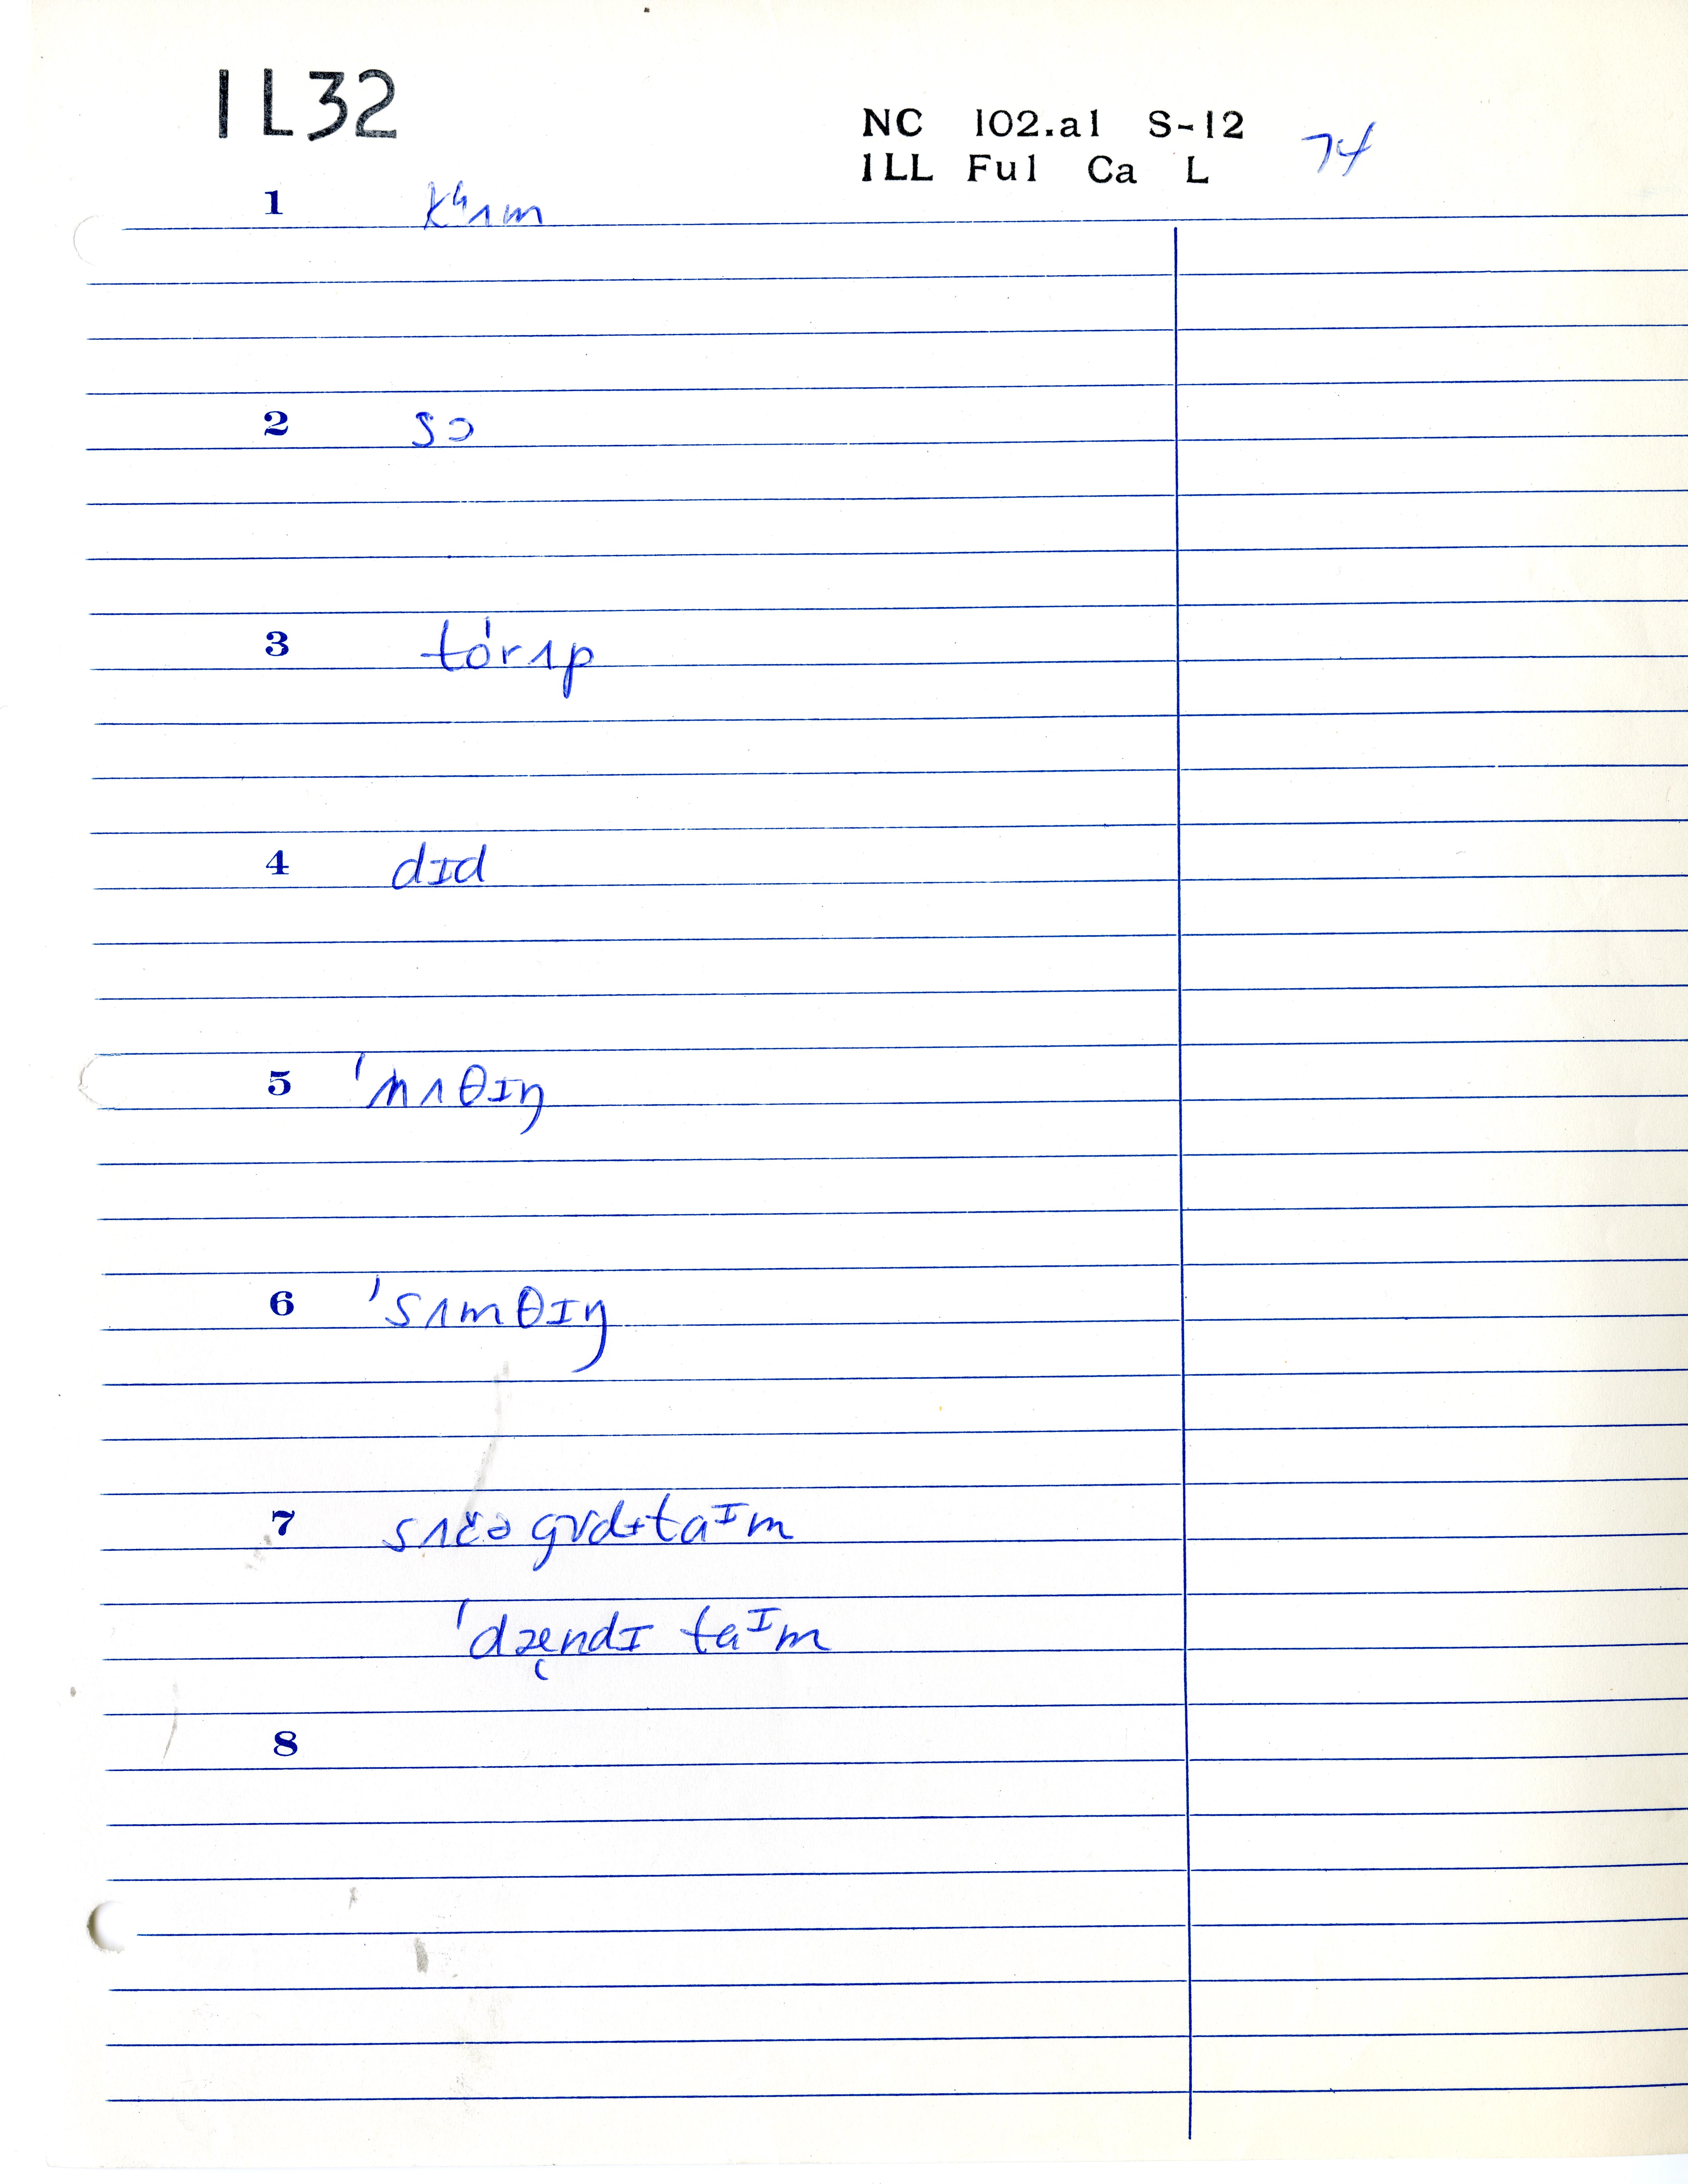 IL32
NC 102.a1 S-12
ILL Ful Ca L
74
1 kʰʌm
2 sɔ
3 tórʌp
4 dɪd
5 'nʌθɪŋ
6 'sʌmθɪŋ
7 sʌčə gʊdɨtaᴵm
'dæ̨ndɪ taᴵm
8